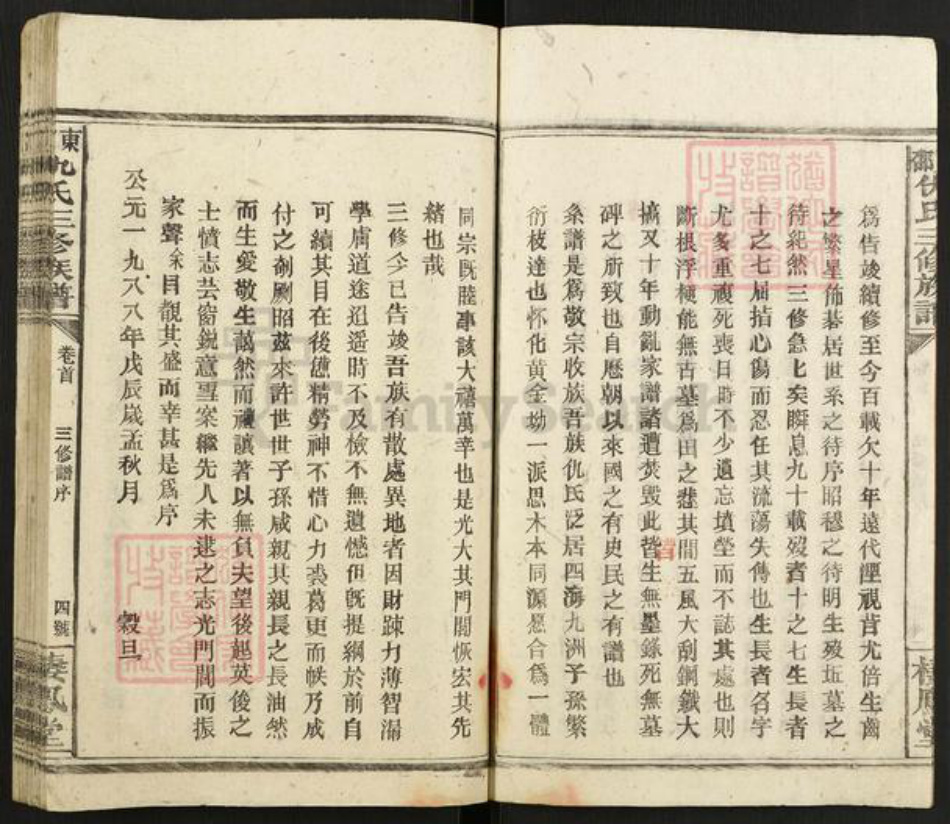 為告竣續修至今百載欠十年遠代湮視昔尤倍生齒
之繁星佈碁居世系之待序昭穆之待明生歿坵墓之
待絕然三修急匕矣瞬息九十載歿者十之七生長者
十之七屈指心傷而忍任其流蕩失傳也生長者名字
尤多重複死喪日時不少遺忘墳塋而不誌其處也則
斷根浮梗能無古墓為田之悲其間五風大刮鋼鐵大
搞又十年動亂家譜諸遭焚毀此皆生無墨錄死無墓
碑之所致也自歷朝以來國之有史民之有譜也
糸譜是為敬宗收族吾族仇氏泛居四海九洲子孫繁
衍枝達也怀化黄金坳一派思木本同源愿合為一體
同宗既睦事該大禧萬幸也是光大其門閭恢宏其先
緒也哉
三修今已告竣吾族有散處異地者因財踈力薄智淺
學庸道途迢遥時不及檢不無遺憾但既提綱於前自
可續其目在後德精勞神不惜心力裘葛更而帙乃成
付之剞劂昭兹來許世世子孫咸親其親長之長油然
而生愛敬生藹然而禮讓著以無負夫望後起英俊之
士憤志芸窗鋭意雪案繼先人未逮之志光門閭而振
家聲余目覩其盛而幸甚是為序
公元一九八八年戊辰歲孟秋月
穀旦
東仇氏三修族譜
卷首
三修譜序
四號
棲鳳堂
FamilySearch